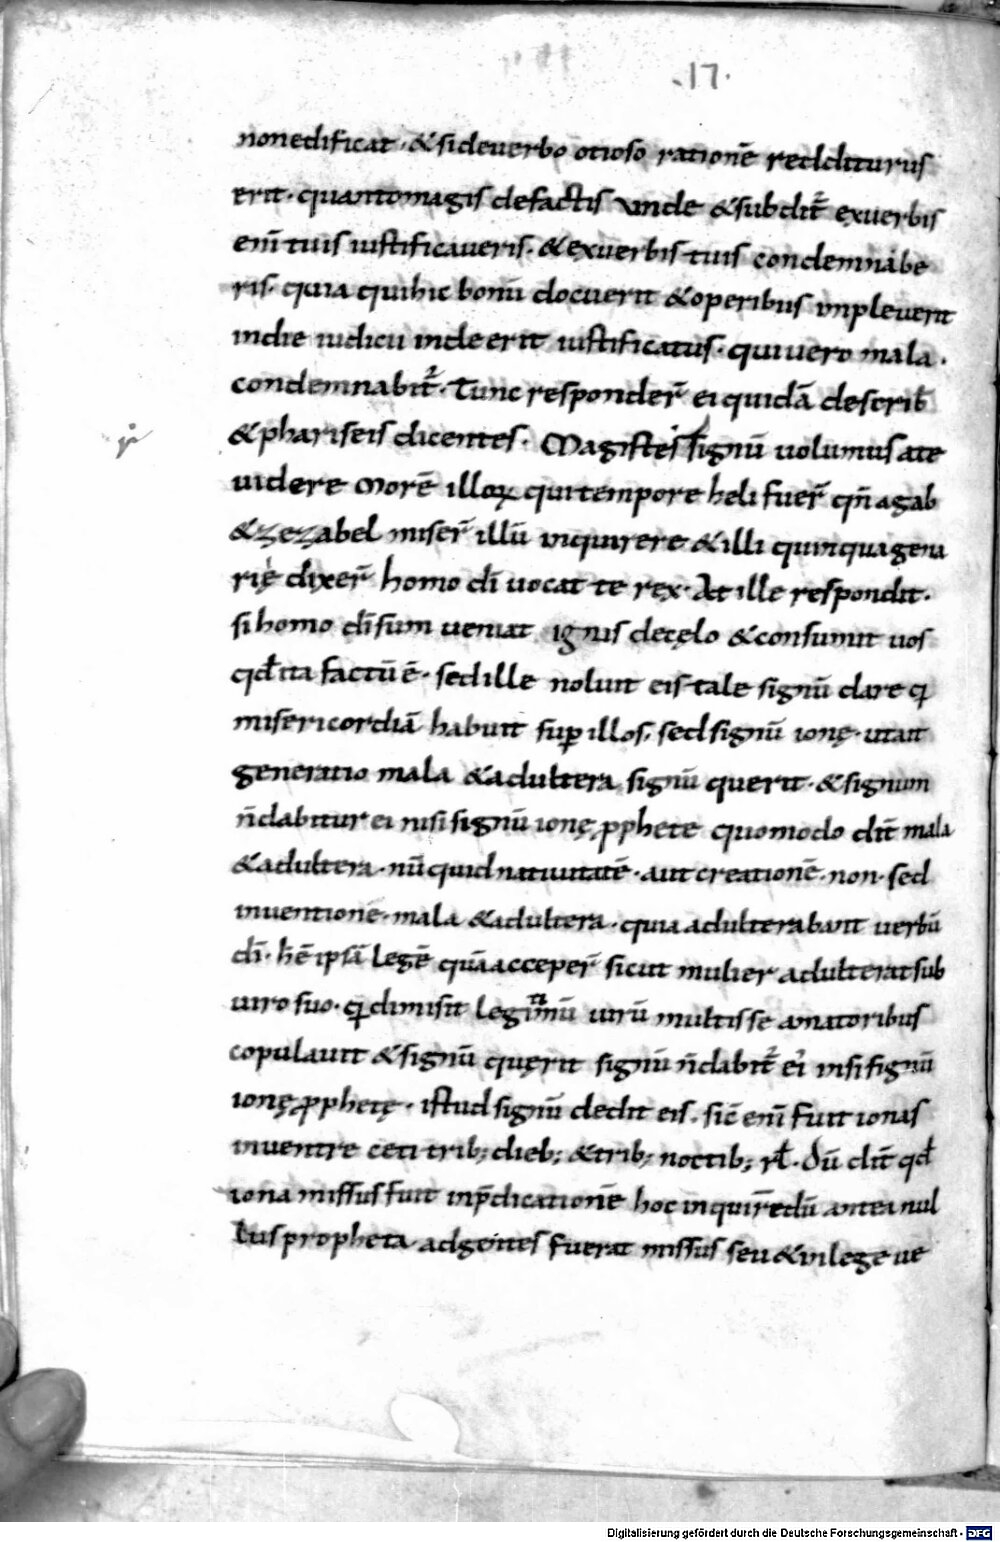 .17.
non edificat · & si de uerbo otioso rationē reddliturus
erit · quanto magis de factis Vnde & subdit̄ ex uerbis
enī tuis iustificaueris · & ex uerbis tuis condemnabe
ris · quia qui hic bonū docuerit & operibus impleuerit
in die iudicii inde erit iustificatus · qui uero mala ·
condemnabit̄ · Tunc responder̄ ei quidā de scrib̄
& phariseis dicentes · Magister signū uolumus a te
uidere Morē illoꝝ qui tempore heli fuer̄ qn̄ agab
& Zezabel miser̄ illū inquirere & illi quinquagena
rię dixer̄ homo dī uocat te rex · At ille respondit ·
si homo dī sum ueniat ignis de cęlo & consumit uos
qđ ita factū ē · sed ille noluit eis tale signū dare q
misericordiā habuit suꝑ illos, sed signū ionę · ut ait
generatio mala & adultera signū querit · & signum
n̄ dabitur ei nisi signū ionę ꝓphete quomodo dit̄ mala
& adultera · nūquid natiuitatē · aut creationē · non · sed
inuentionē · mala & adultera · quia adulterabant uerbū
dī · h̄ ē ipsā legē quā acceper̄ sicut mulier adulterat sub
uiro suo · q dimisit legitimū uirū multis se amatoribus
copulauit & signū quęrit signū n̄ dabit̄ ei nisi signū
ionę ꝓphetę · istud signū dedit eis · sic̄ enī fuit ionas
in uentre ceti trib; dieb; & trib; noctib; rł · Dū dit̄ qđ
iona missus fuit in p̄dicationē hoc inquirēdū antea nul
lus propheta ad gentes fuerat missus seu & in lege ue